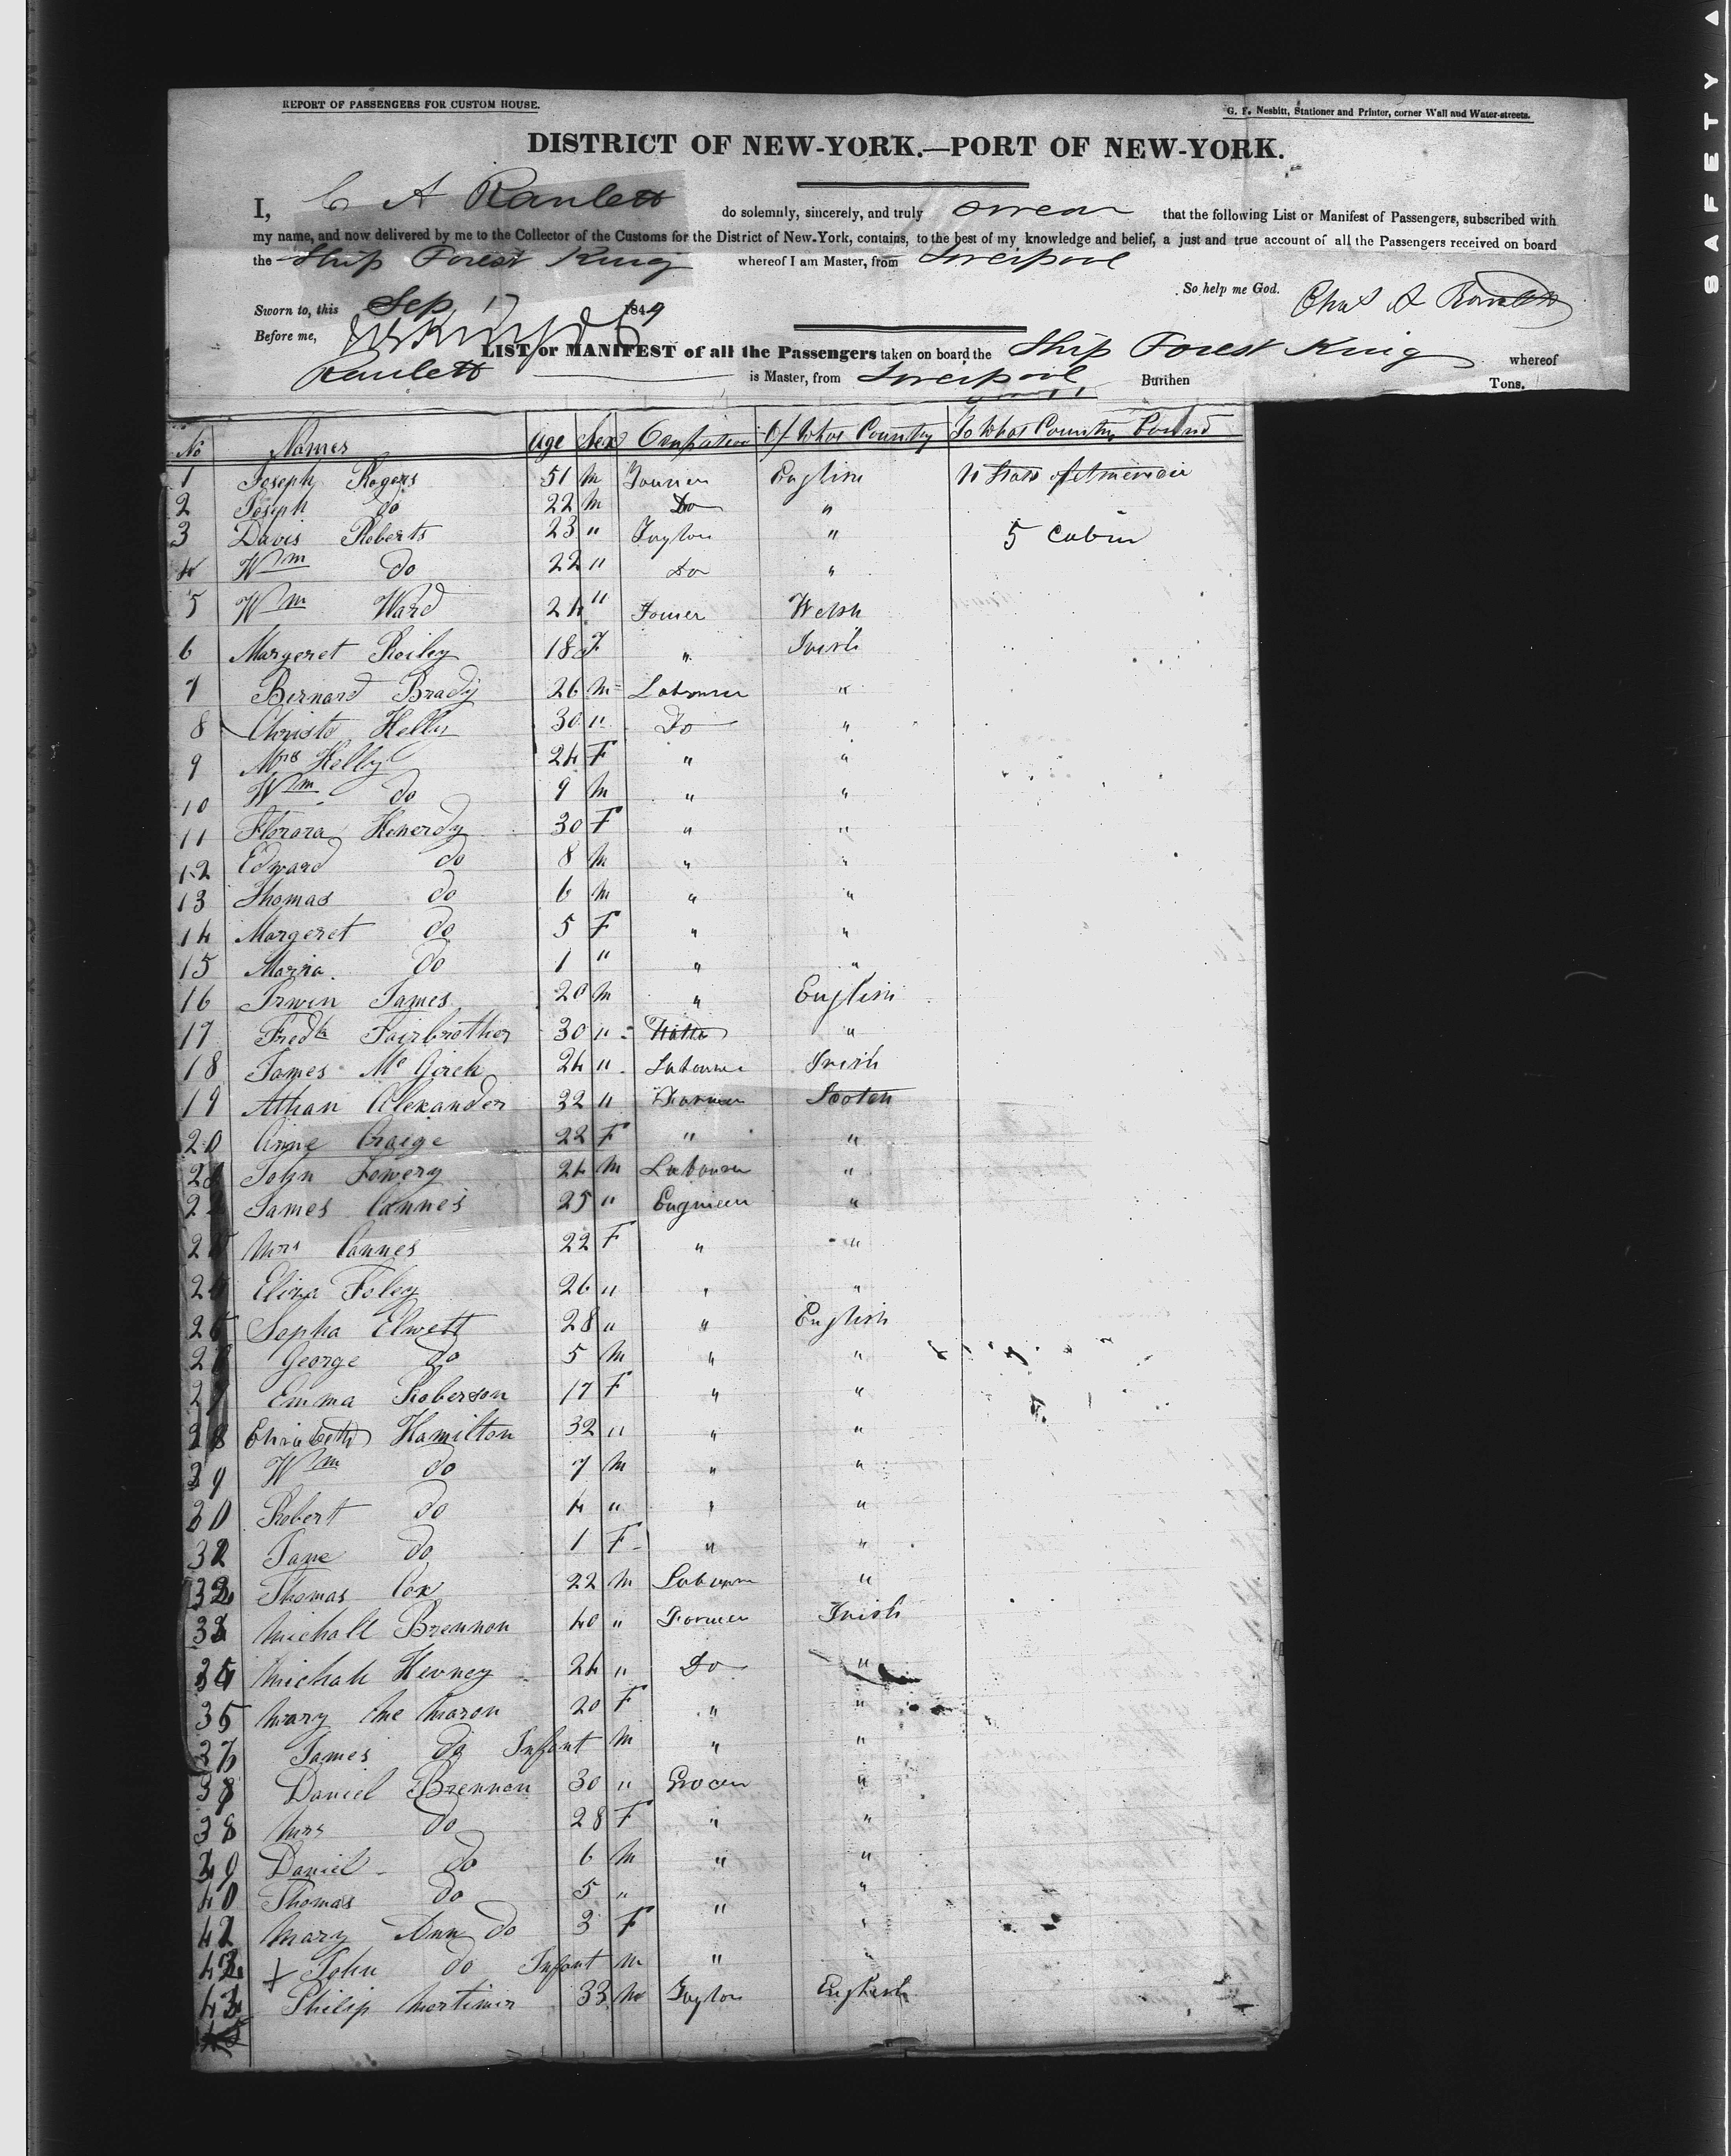 SAFETY
REPORT OF PASSENGERS FOR CUSTOM HOUSE.
G. F. Nesbitt, Stationer and Printer, corner Wall and Water-streets.
DISTRICT OF NEW-YORK.—PORT OF NEW-YORK.
I, C A Ranlett do solemnly, sincerely, and truly swear that the following List or Manifest of Passengers, subscribed with
my name, and now delivered by me to the Collector of the Customs for the District of New-York, contains, to the best of my knowledge and belief, a just and true account of all the Passengers received on board
the Ship Forest King whereof I am Master, from Liverpool
So help me God. Chas A Ranlett
Sworn to, this Sep 17 1849
Before me,
LIST or MANIFEST of all the Passengers taken on board the Ship Forest King whereof
Ranlett is Master, from Liverpool Burthen Tons.
No Names Age Sex Occupation Of What Country To What Country Bound
1 Joseph Rogers 51 M English U States of America
2 Joseph do 22 M Do "
3 Davis Roberts 23 " " 5 Cabin
4 Wm do 22 " Do "
5 Wm Ward 24 " Welsh
6 Margeret Reiley 18 F " Irish
7 Bernard Brady 26 M Labourer "
8 Christo Kelly 30 " Do "
9 Mrs Kelly 24 F " "
10 Wm do 9 M " "
11 Henerdy 30 F " "
12 Edward do 8 M " "
13 Thomas do 6 M " "
14 Margeret do 5 F " "
15 Maria do 1 " " "
16 Irwin James 20 M " English
17 Fredk Fairbrother 30 " "
18 James Mc Girck 24 " Labourer Irish
19 Athan Alexander 22 " Farmer Scotch
20 Anne Craige 22 F " "
21 John Lowery 24 M Labourer "
22 James Connes 25 " Engineer "
23 Mrs Connes 22 F " "
24 Eliza Foley 26 " " "
25 Sopha Elwett 28 " " English
26 George do 5 M " "
27 Emma Roberson 17 F " "
28 Elizabeth Hamilton 32 " " "
29 Wm do 7 M " "
30 Robert do 4 " " "
31 Jane do 1 F " "
32 Thomas Cox 22 M Labourer "
33 Michall Brennon 40 " Farmer Irish
34 Michall Hevney 24 " Do "
35 Mary Mc Maron 20 F " "
36 James do Infant M " "
37 Daniel Brennon 30 " Grocer "
38 Mrs do 28 F " "
39 Daniel do 6 M " "
40 Thomas do 5 " " "
41 Mary Ann do 3 F "
42 + John do Infant M " "
43 Philip Mortimer 33 M English